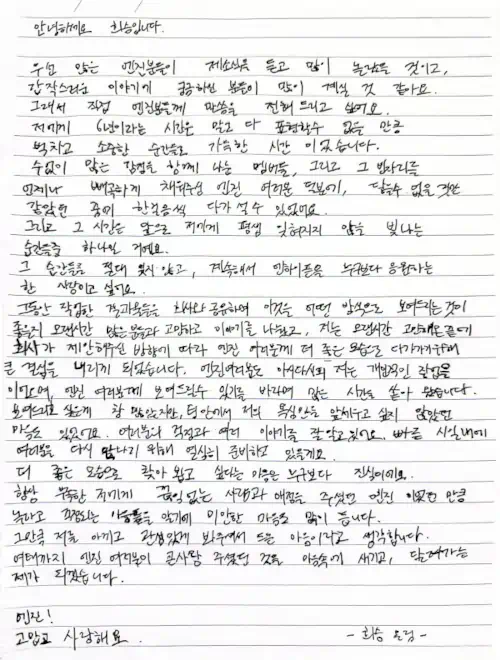 안녕하세요 희승입니다.
우선 많은 엔진분들이 제소식을 듣고 많이 놀랐을 것이고,
갑작스러운 이야기에 궁금하신 분들이 많이 계실 것 같아요.
그래서 직접 엔진분들께 말씀을 전해 드리고 싶어요.
저에게 6년이라는 시간은 말로 다 표현할수 없을 만큼
벅차고 소중한 순간들로 가득한 시간 이었습니다.
수없이 많은 감정을 함께 나눈 멤버들, 그리고 그 빈자리를
언제나 빼곡하게 채워주신 엔진 여러분 덕분에, 닿을수 없을 것만
같았던 꿈에 한걸음씩 다가 설 수 있었어요.
그리고 그 시간은 앞으로 저에게 평생 잊혀지지 않을 빛나는
순간들중 하나일 거예요.
그 순간들을 절대 잊지 않고, 계속해서 엔하이픈을 누구보다 응원하는
한 사람이고 싶어요.
그동안 작업한 결과물들을 회사와 공유하며 이것을 어떤 방식으로 보여드리는것이
좋을지 오랜시간 많은 분들과 고민하고 이야기를 나눴고, 저는 오랜시간 고민해온끝에
회사가 제안해주신 방향에 따라 엔진 여러분께 더 좋은 모습으로 다가가기위해
큰 결심을 내리게 되었습니다. 엔진여러분도 아시다시피 저는 개인적인 작업물
이어오며, 엔진 여러분께 보여드릴수 있기를 바라며 많은 시간을 쏟아 왔습니다.
보여드리고 싶은게 참 많았지만, 팀 안에서 저의 욕심만을 앞세우고 싶지 않았던
마음도 있었어요. 여러분의 걱정과 여러 이야기를 잘 알고 있어요. 빠른 시일내에
여러분을 다시 만나기 위해 열심히 준비하고 있을게요.
더 좋은 모습으로 찾아 뵙고 싶다는 마음은 누구보다 진심이에요.
항상 부족한 저에게 끊임 없는 사랑과 애정을 주셨던 엔진 이었던 만큼
놀라고 걱정되는 마음들을 알기에 미안한 마음도 많이 듭니다.
그만큼 저를 아끼고 관심있게 봐주셔서 드는 마음이라고 생각합니다.
여태까지 엔진 여러분이 큰사랑 주셨던 것을 마음속에 새기고, 달려가는
제가 되겠습니다.
엔진!
고맙고 사랑해요. - 희승 올림 -